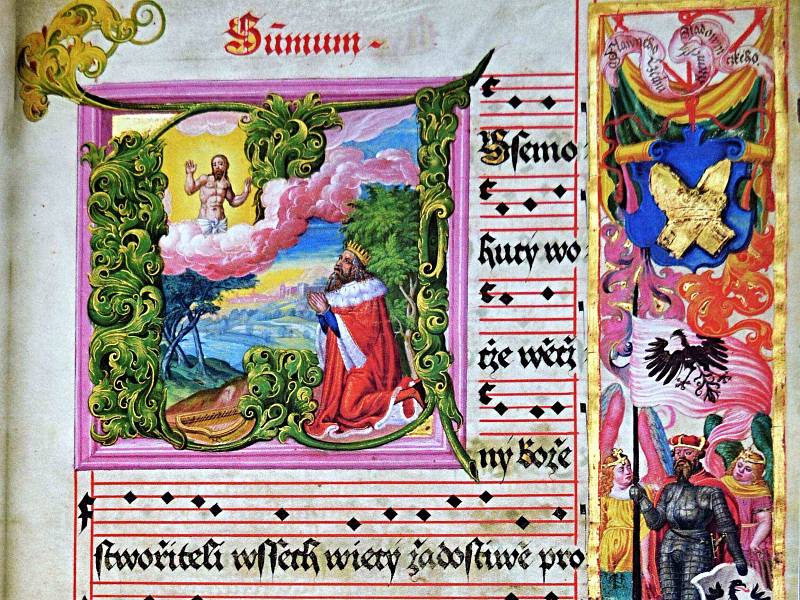 Sūmum
Sſemo
hutý wo
cže wěčž
ný Bože
ſtwořiteli wſſech wiecý žadoſtiwě pro